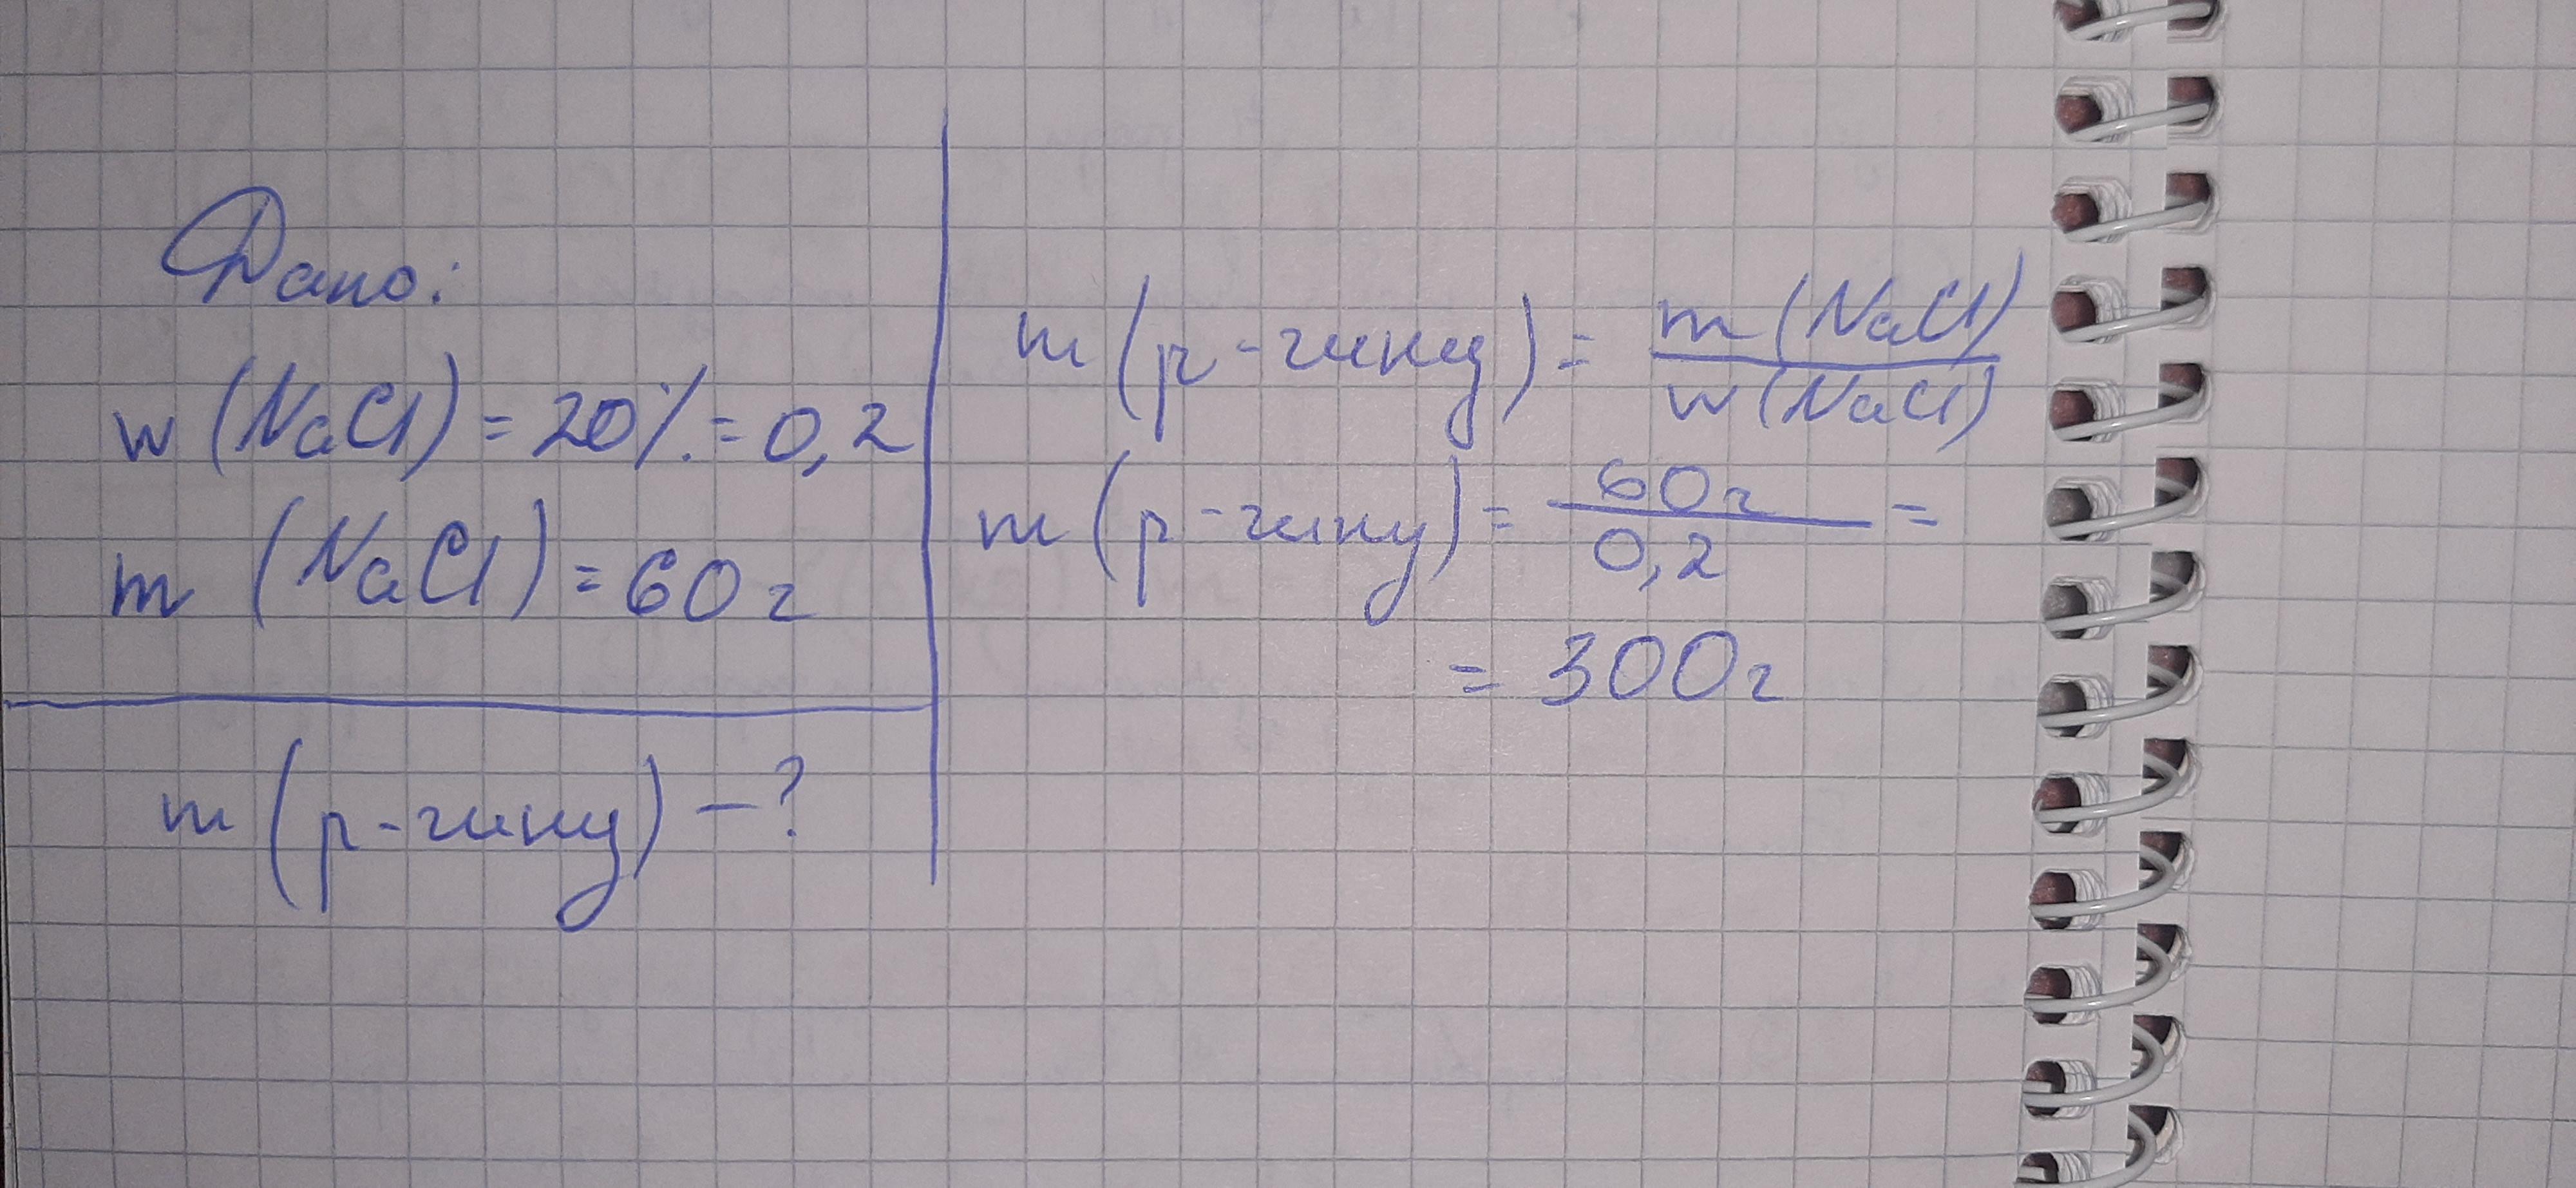 Дано:
w (NaCl) = 20% = 0,2
m (NaCl) = 60 г
m (р-чину) - ?
m (р-чину) = m (NaCl) / w (NaCl)
m (р-чину) = 60 г / 0,2 =
= 300 г